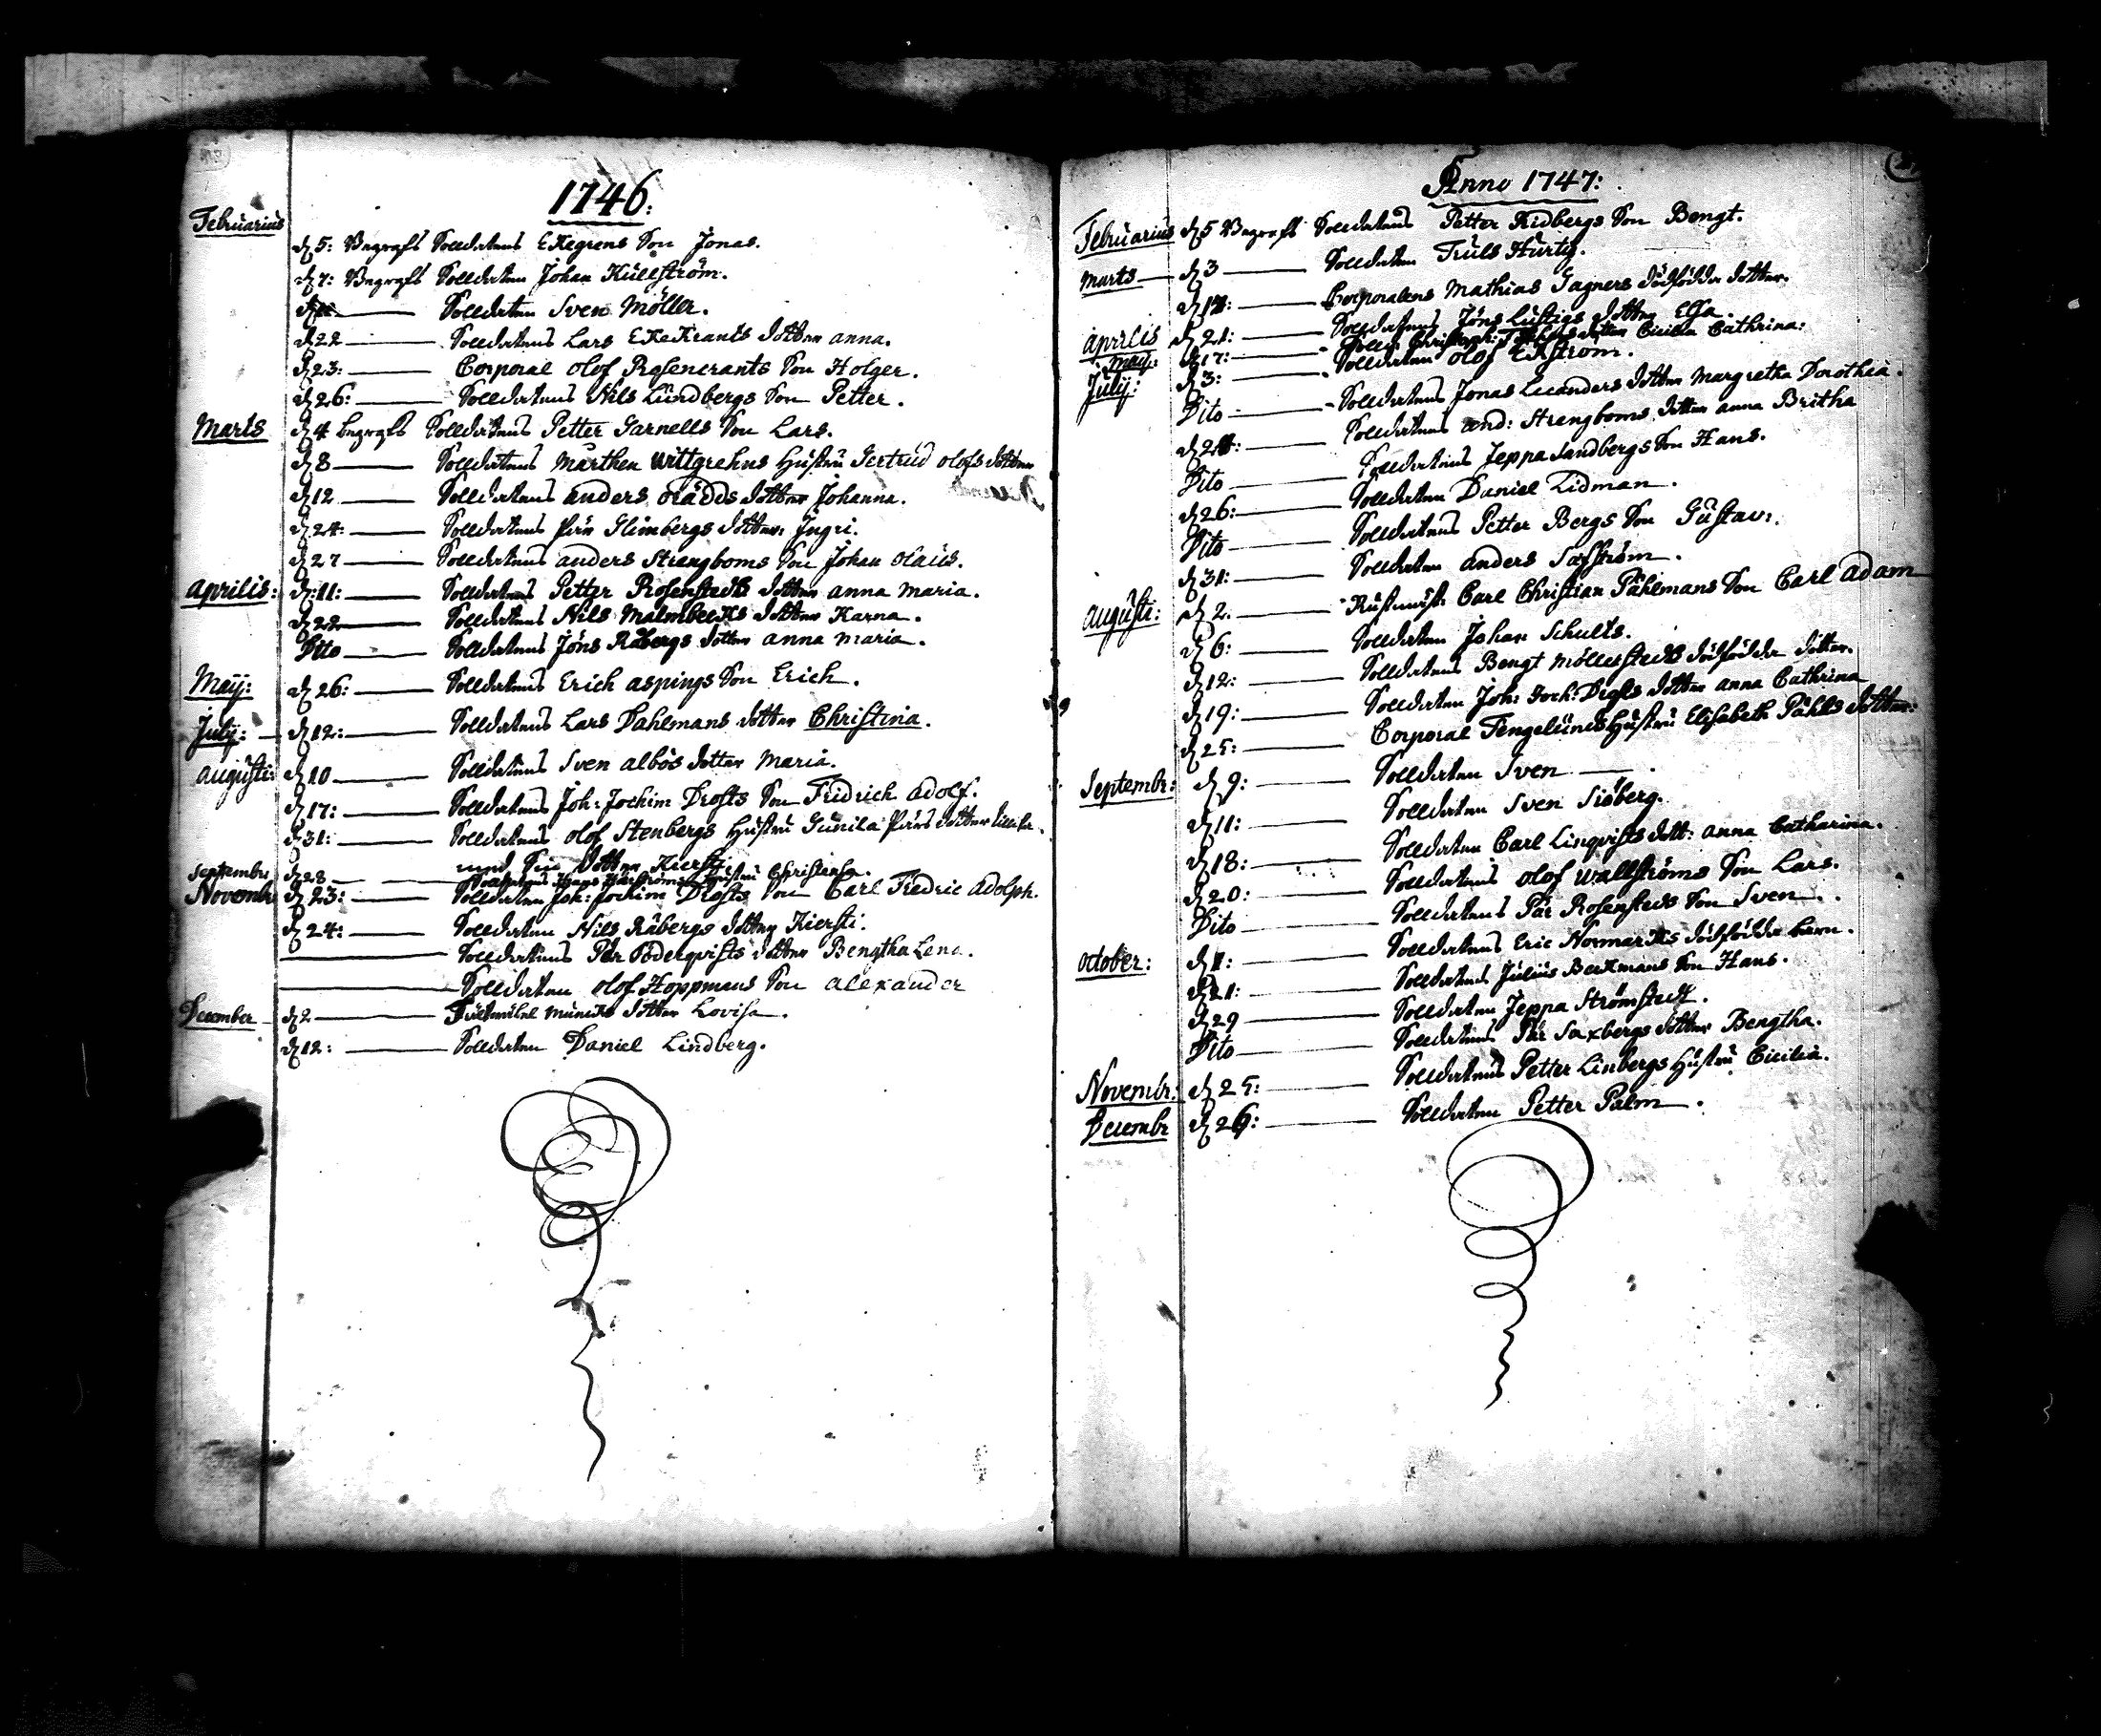 1746:
Februarius
d 5: Begrofs Solldatens Ekegrens Son Jonas.
d 7: Begrofs Solldaten Johan Kullström.
Solldaten Sven Möller.
d 22 Solldatens Lars Ekekrants dotter anna.
d 23: Corporal Olof Rosenerants Son Holger.
d 26: Solldatens Nils Lundbergs Son Petter.
Marts d 4 begrofs Solldatens Petter Garnells Son Lars.
d 8 Solldatens Mårthen Wittgrehns Hustru Gertrud olofs dotter
d 12 Solldatens anders Rädds dotter Johanna.
d 24: Solldatens Glimbergs dotter: Ingri.
d 27 Solldatens anders Strengboms Son Johan Olaus.
aprilis: d 11: Solldatens Petter Rosenstedts dotter anna maria.
d 22 Solldatens Nils Malmbecks dotter Karna.
Dito Solldatens Jöns Råbergs dotter anna maria.
Maij: d 26: Solldatens Erich aspings Son Erich.
July: d 12: Solldatens Lars Dahlmans dotter Christina.
augusti: d 10 Solldatens Sven albos dotter Maria.
d 17: Solldatens Joh: Jochim Drosts Son Fridrich adolf.
d 31: Solldatens Olof Stenbergs Hustru Gunila Pärs dotter
med Sin dotter Kiersti.
Septembr d 28 Solldatens Hustru Christensa.
Novembr d 23: Solldaten Joh: Jochim Drosts Son Carl Fredric adolph.
d 24: Solldaten Nils Råbergs dotter Kiersti.
Solldatens Pär Söderqvists dotter Bengtha Lena.
Solldaten Olof Hoppmans Son alexander
December d 2 dotter Lovisa.
d 12: Solldaten Daniel Lindberg.
Anno 1747:
Februarius d 5 Begrofs Solldatens Petter Ridbergs Son Bengt.
Marts d 3 Solldaten Truls Hurtig.
Corporalens Mathias Gagners dödfödda dotter.
aprilis d 21: Solldatens Jöns Lustigs dotter Elsa.
May: d 17: dotter Cicilia Cathrina:
July: d 3: Solldaten Olof Ekström.
Dito Solldatens Jonas Leanders dotter Margretha Dorothea.
Solldatens And: Strengboms dotter anna Britha
Dito Solldatens Jeppa Sandbergs Son Hans.
d 26: Solldaten Daniel Lidman.
Dito Solldatens Petter Bergs Son Gustav:
d 31: Solldaten anders
augusti: d 2. Carl Christian Påhlmans Son Carl adam
d 6: Solldaten Johan Schults.
d 12: Solldatens Bengt Möllerstedts dödfödda dotter.
d 19: Solldaten Joh: Joch: dotter anna Cathrina
d 25: Corporal Tengelunds Hustru Elisabeth Påhls dotter:
Septembr: d 9: Solldaten Sven
d 11: Solldaten Sven Siöberg.
d 18: Solldaten Carl Linqvists dott: anna Catharina.
d 20: Solldatens Olof Wallströms Son Lars.
Dito Solldatens Pär Rosensteds Son Sven.
October: d 1: Solldatens Eric Normarks dödfödda barn.
d 21: Solldatens Julius Berkmans Son Hans.
d 29 Solldaten Jeppa Strömstedt.
Dito Solldatens Pär Saxbergs dotter Bengtha.
Novembr: d 25: Solldatens Petter Linbergs Hustru Cicilia.
Decembr d 26: Solldaten Petter Palm.